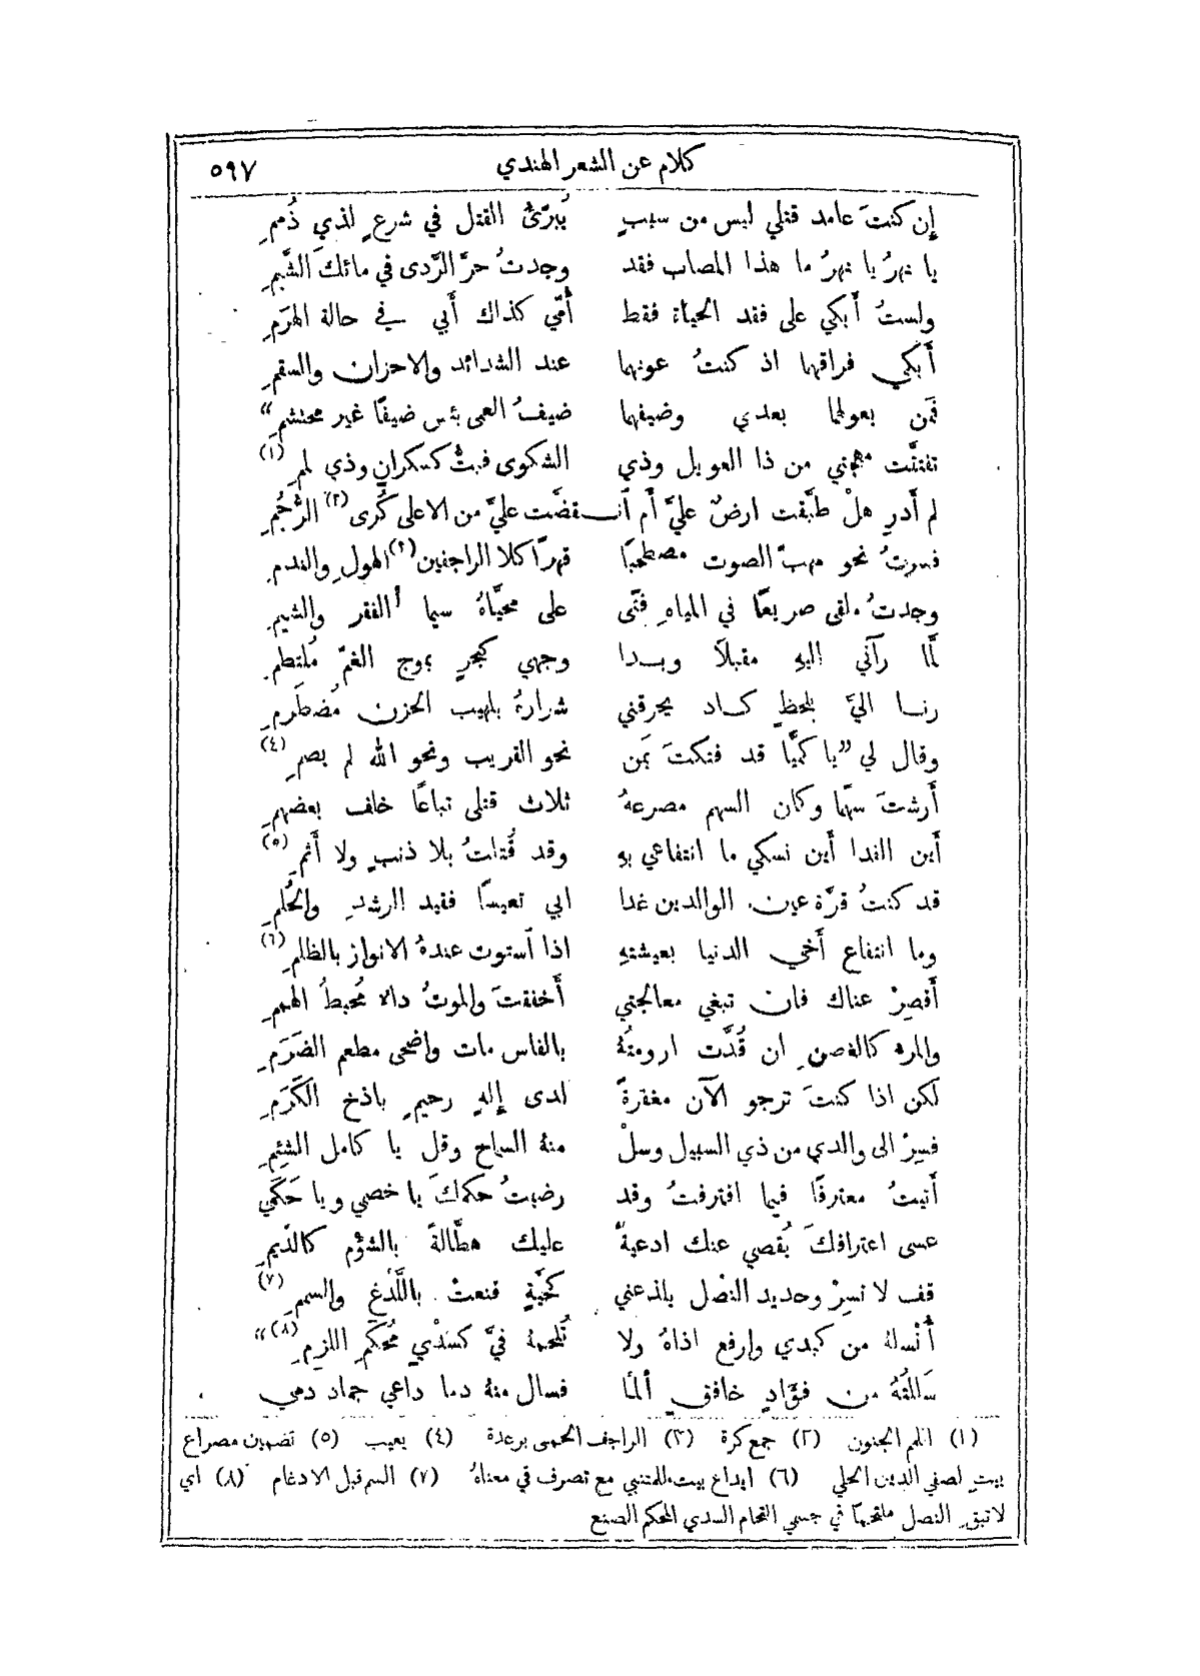 كلام عن الشعر الهندي ٥٩٧
إن كنتَ عامد قتلي ليس من سببٍ يُبرّئُ القتل في شرعٍ لذي ذُممِ
يا نهرُ يا نهرُ ما هذا المصاب فقد وجدتُ حرَّ الرّدى في مائكَ الشَّبمِ
ولستُ أبكي على فقد الحياة فقط أمّي كذاك أبي في حالة الهرَمِ
أبكي فراقها اذ كنتُ عونهما عند الشدائد والاحزان والسقمِ
فمن يعولهما بعدي وضيفهما ضيفُ العمى بئس ضيفًا غير محتشمِ“
تفتَّتت مهجتي من ذا العويل وذي الشكوى فبتُّ كسكرانٍ وذي لممِ (١)
لم أَدرِ هلْ طبَّقت ارضٌ عليَّ أَم اُنـقضَّت عليَّ من الاعلى كُرى (٢) الرَّجُمِ
فسرتُ نحو مهبّ الصوت مصطحبًا قهرًا كلا الراجفين (٣) الهول والندمِ
وجدتُ ملقى صريعًا في المياهِ فتًى على محيَّاهُ سيما الفقر والشيمِ
لمَّا رآني اليهِ مقبلاً وبدا وجهي كبحرٍ بموج الغمّ مُلتطمِ
رنا اليَّ بلحظٍ كاد يحرقني شرارةً بلهيب الحزن مُضطَرمِ
وقال لي ”يا كميًّا قد فتكتَ بمَن نحو القريب ونحو الله لم يصمِ (٤)
أَرشتَ سهمًا وكان السهم مصرعهُ ثلاث قتلى تباعًا خلف بعضهمِ
أين الندا أين نسكي ما انتفاعي بهِ وقد قُتلتُ بلا ذنبٍ ولا أثمِ (٥)
قد كنتُ قرّة عين الوالدين غدا ابي تعيسًا فقيد الرشدِ والحُلُمِ
وما انتفاع أَخي الدنيا بعيشتهِ اذا اُستوت عندهُ الانوار بالظلمِ (٦)
أقصِرْ عناك فان تبغي معالجتي أخفقتَ والموتُ داءٌ مُحبطُ الهممِ
والمرء كالغصن ان قُدَّت ارومتُهُ بالفاس مات واضحى مطعم الضَرَمِ
لكن اذا كنتَ ترجو الآن مغفرةً لدى إلهٍ رحيمٍ باذخ الكَرَمِ
فسِرْ الى والدي من ذي السبيل وسلْ منهُ السماح وقل يا كامل الشِيَمِ
أتيتُ معترفًا فيما اقترفتُ وقد رضيتُ حكمكَ يا خصمي ويا حَكَمي
عسى اعترافكَ يُقصي عنك ادعيةً عليك هطَّالةً بالشؤم كالدِّيمِ
قف لا تسِرْ وحديد النصْل يلذعني كحيَّةٍ قنعتْ باللَّدْغ والسممِ (٧)
أنْسلهُ من كبدي وارفع اذاهُ ولا تُلحمهُ فيَّ كسَدْيٍ مُحكَمِ اللزمِ (٨)“
سَاللتُهُ من فؤَادٍ خافقٍ ألمًا فسال منهُ دما داعي جماد دمي
(١) اللمم الجنون (٢) جمع كرة (٣) الراجف الحمى برعدة (٤) يعيب (٥) تضمين مصراع
بيتٍ لصفي الدين الحلي (٦) ابداع بيت للمتنبي مع تصرف في معناهُ (٧) السم قبل الادغام (٨) اي
لا تبقِ النصل ملتحمًا في جسمي التحام السدي المحكم الصنع